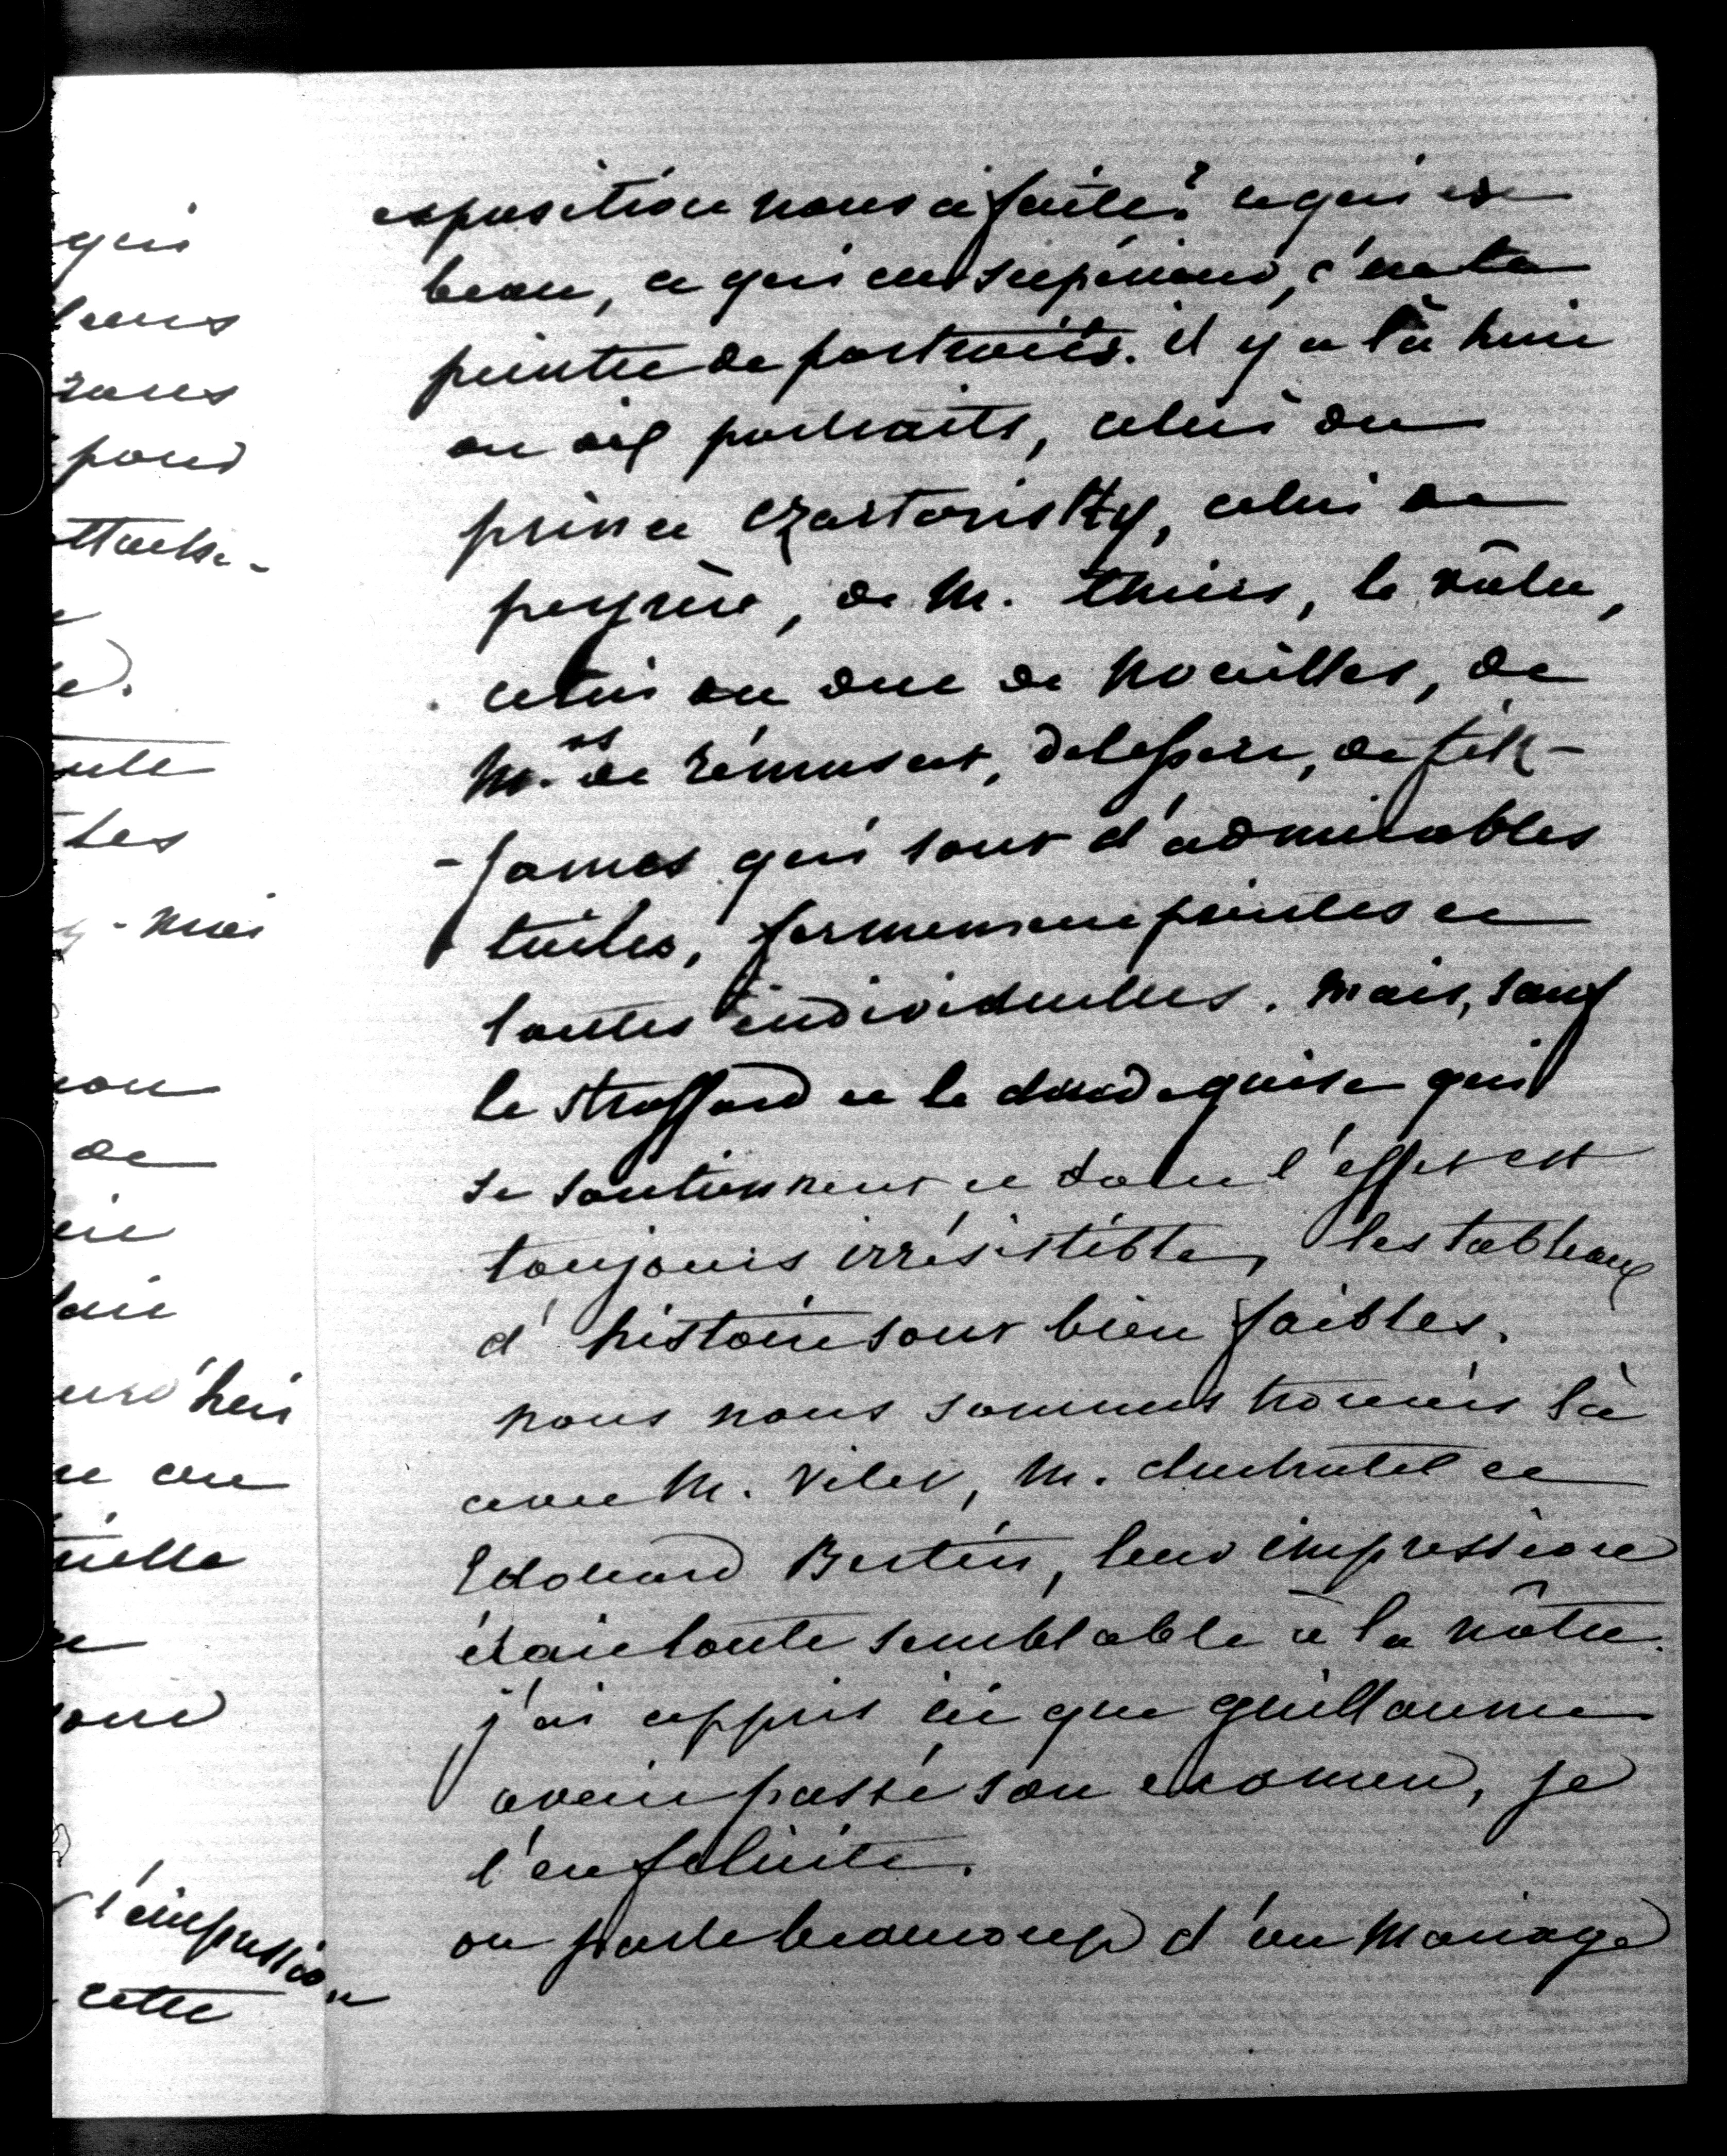 qui
leurs
rons
pour
ttache-
e
le.
oute
les
y-moi
non
de
oir
lair
urd'hui
et un
rielle
l'impression
cette
exposition nous a faite? ce qui est
beau, ce qui est supérieur, c'est la
peintre de portraits. il y a là huit
ou dix portraits, celui du
prince Czartoriski, celui de
peyrère, de M. thiers, le vôtre,
celui du duc de Noailles, de
M.rs de rémusat, delessert, de fitz-
-James qui sont d'admirables
toiles, fermement peintes et
toutes individuelles. Mais, sauf
le strafford et le duc de guise qui
se soutiennent et dont l'effet est
toujours irrésistible, les tableaux
d'histoire sont bien faibles.
nous nous sommes trouvés là
avec M. Vitet, M. duchatel et
Edouard Bertin, leur impression
était toute semblable à la nôtre.
j'ai appris ici que guillaume
avait passé son examen, je
l'en félicite.
on parle beaucoup d'un Mariage